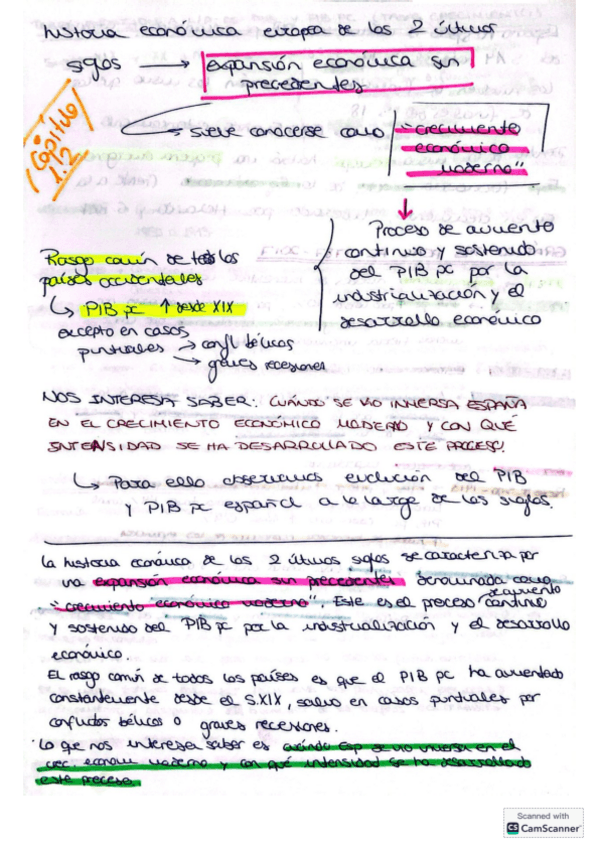 historia económica europea de los 2 últimos
siglos → expansión económica sin
precedentes
Capítulo
1.2
→ suele conocerse como "crecimiento
económico
moderno"
Proceso de aumento
continuo y sostenido
del PIB pc por la
industrialización y el
desarrollo económico
Rasgo común de todos los
países occidentales
↳ PIB pc ↑ desde XIX
excepto en casos
puntuales → confl bélicos
→ graves recesiones
NOS INTERESA SABER: CUÁNDO SE VIO INMERSA ESPAÑA
EN EL CRECIMIENTO ECONÓMICO MODERNO Y CON QUÉ
INTENSIDAD SE HA DESARROLLADO ESTE PROCESO.
↳ Para ello observamos evolución del PIB
y PIB pc español a lo largo de los siglos.
La historia económica de los 2 últimos siglos se caracteriza por
una expansión económica sin precedentes denominada como
"crecimiento económico moderno". Este es el proceso aumento continuo
y sostenido del PIB pc por la industrialización y el desarrollo
económico.
El rasgo común de todos los países es que el PIB pc ha aumentado
constantemente desde el S.XIX, salvo en casos puntuales por
conflictos bélicos o graves recesiones.
Lo que nos interesa saber es cuándo Esp se vio inmersa en el
crec. econom moderno y con qué intensidad se ha desarrollado
este proceso.
Scanned with
CS CamScanner